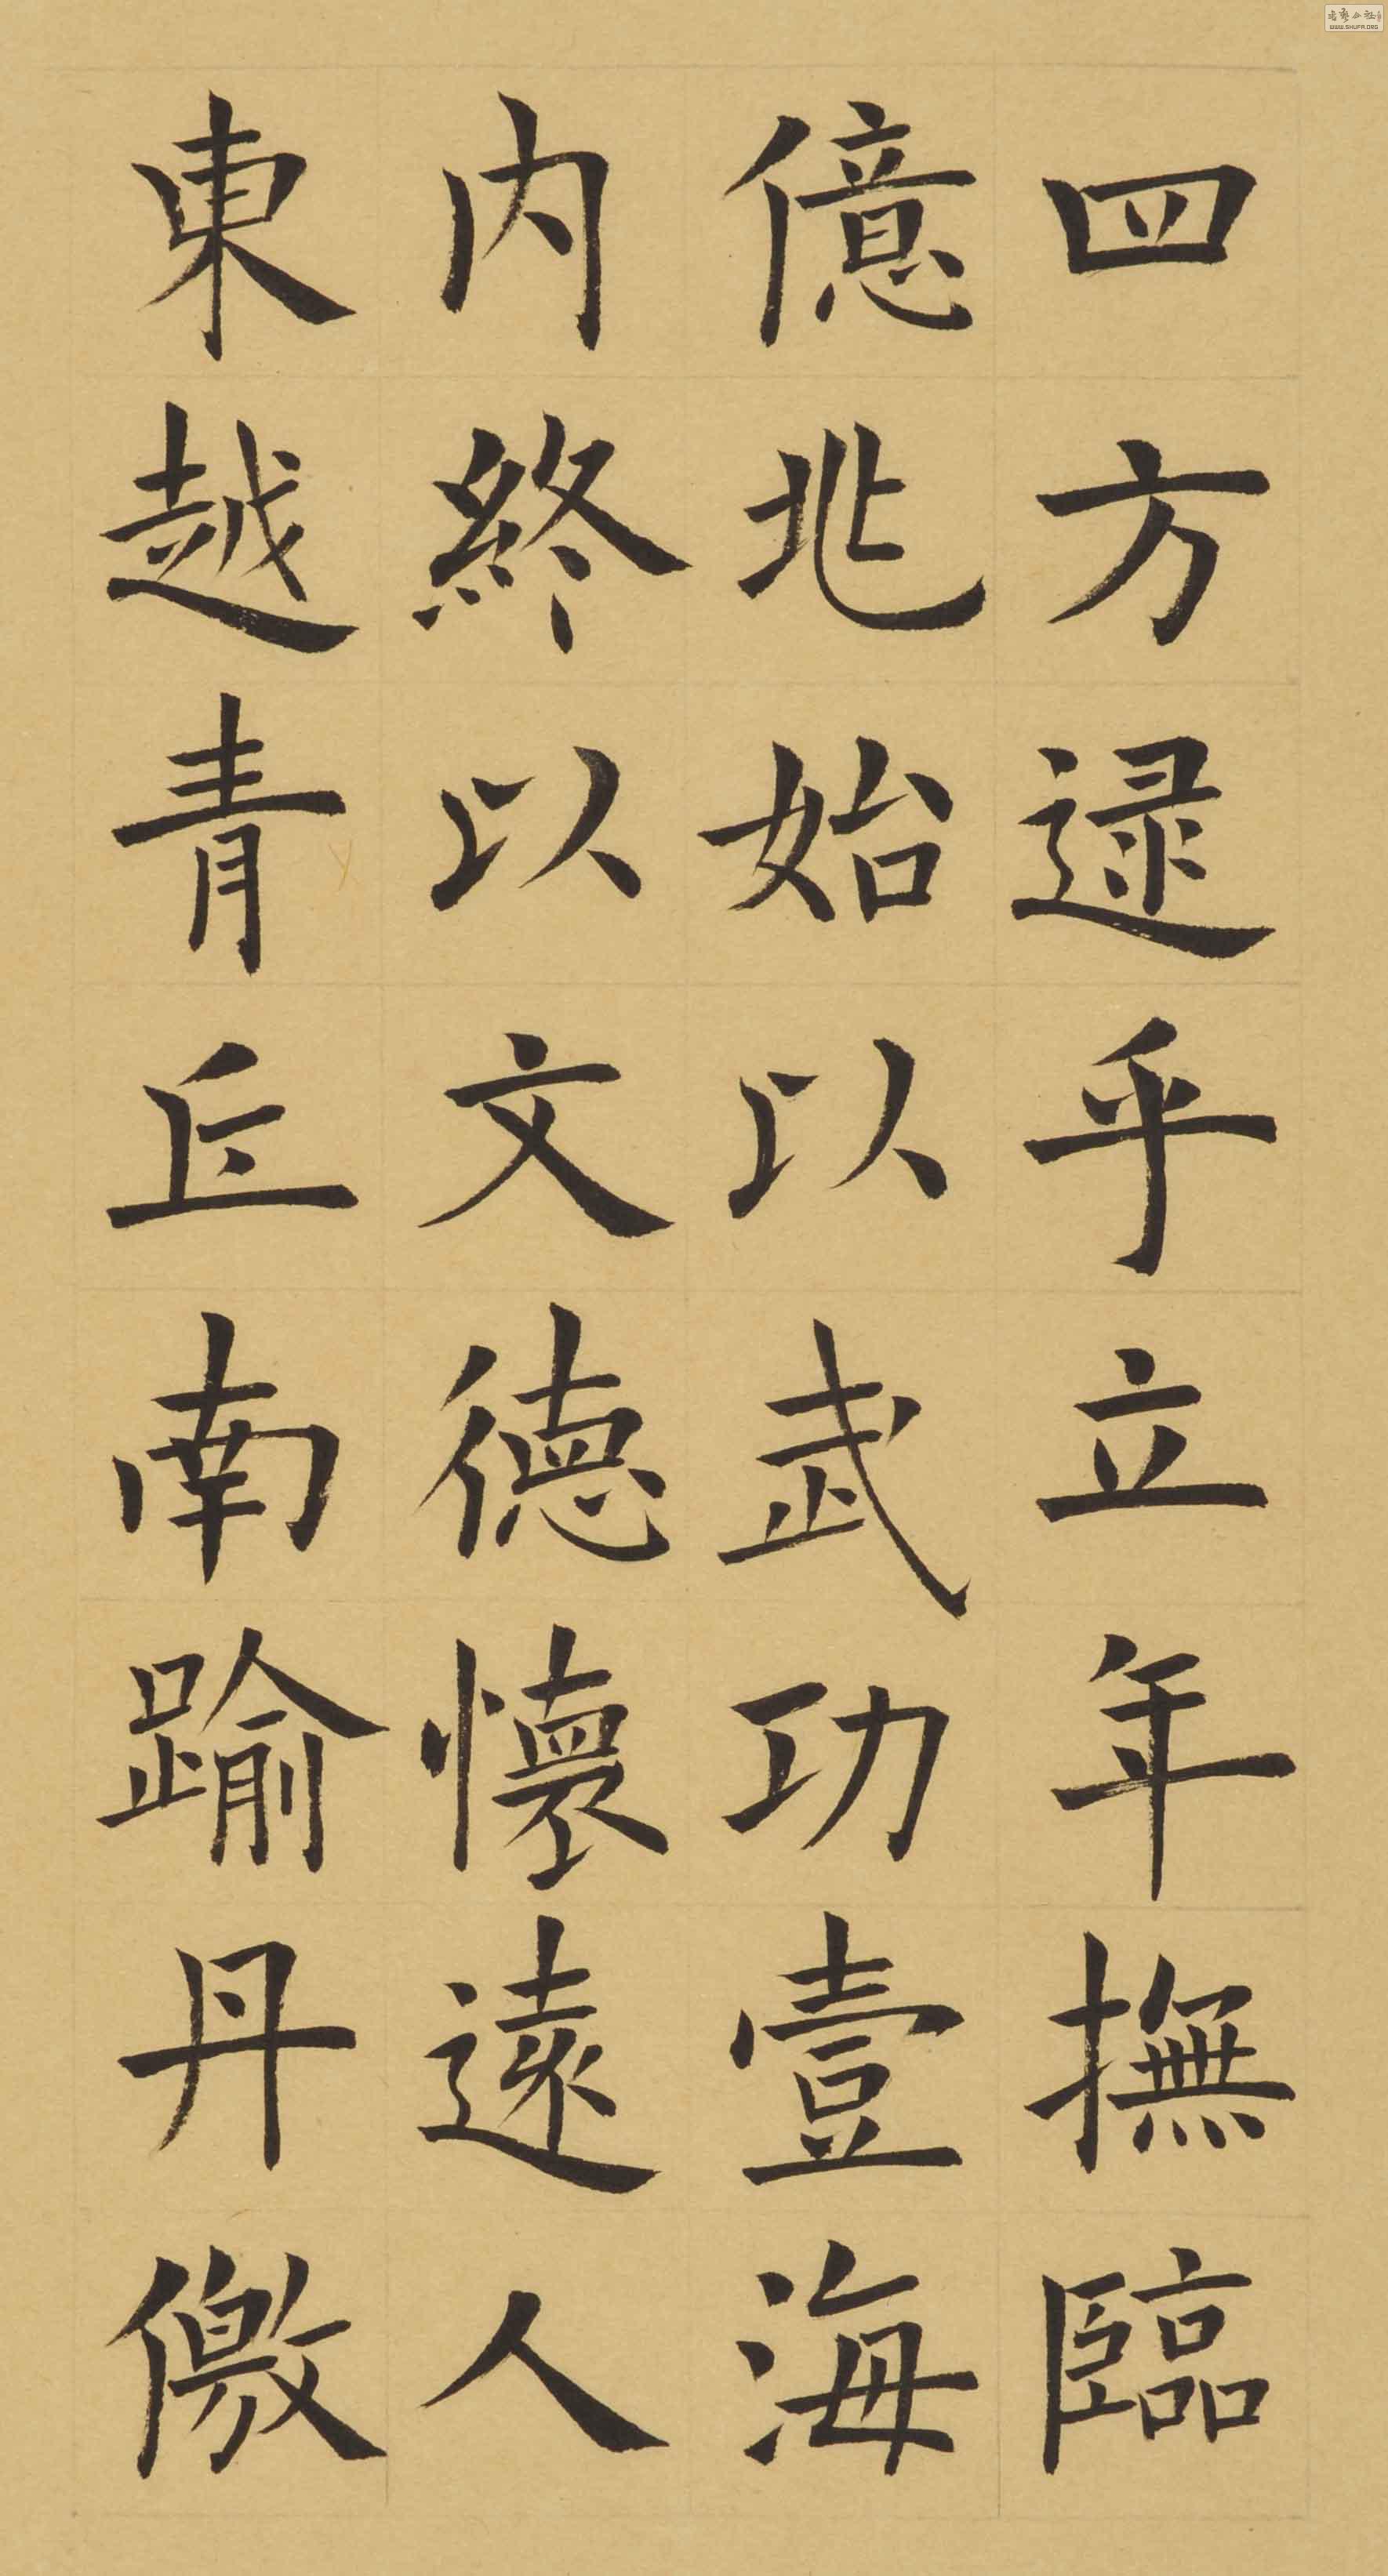 四方逯乎立年撫臨
億兆始以武功壹海
内終以文德懷遠人
東越青丘南踰丹儌
WWW.SHUFA.ORG